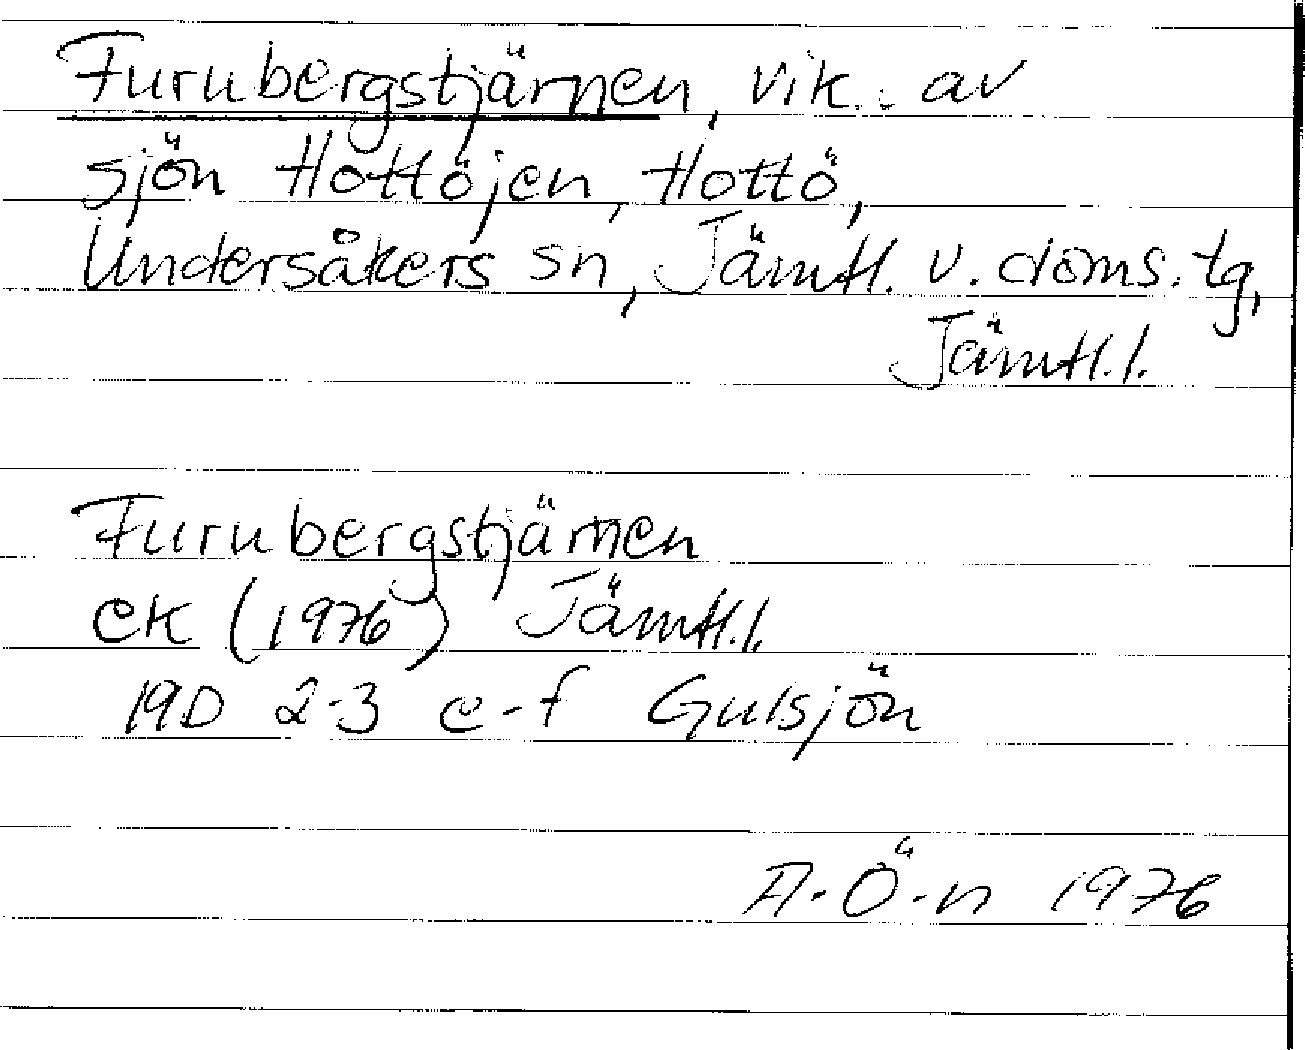 Furubergstjärnen, vik. av
sjön Hottöjen, Hottö,
Undersåkers sn, Jämtl. v. doms. tg,
Jämtl. l.
Furubergstjärnen
ek (1976) Jämtl. l.
19D 2-3 e-f Gulsjön
A. Ö-n 1976